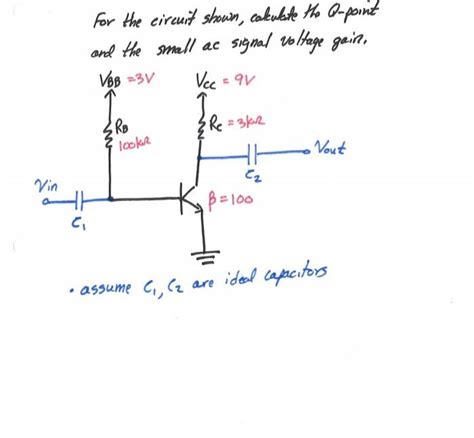 For the circuit shown, calculate the Q-point
and the small ac signal voltage gain.
VBB = 3V
Vcc = 9V
RB
100kΩ
Rc = 3kΩ
Vout
C2
Vin
C1
β = 100
• assume C1, C2 are ideal capacitors